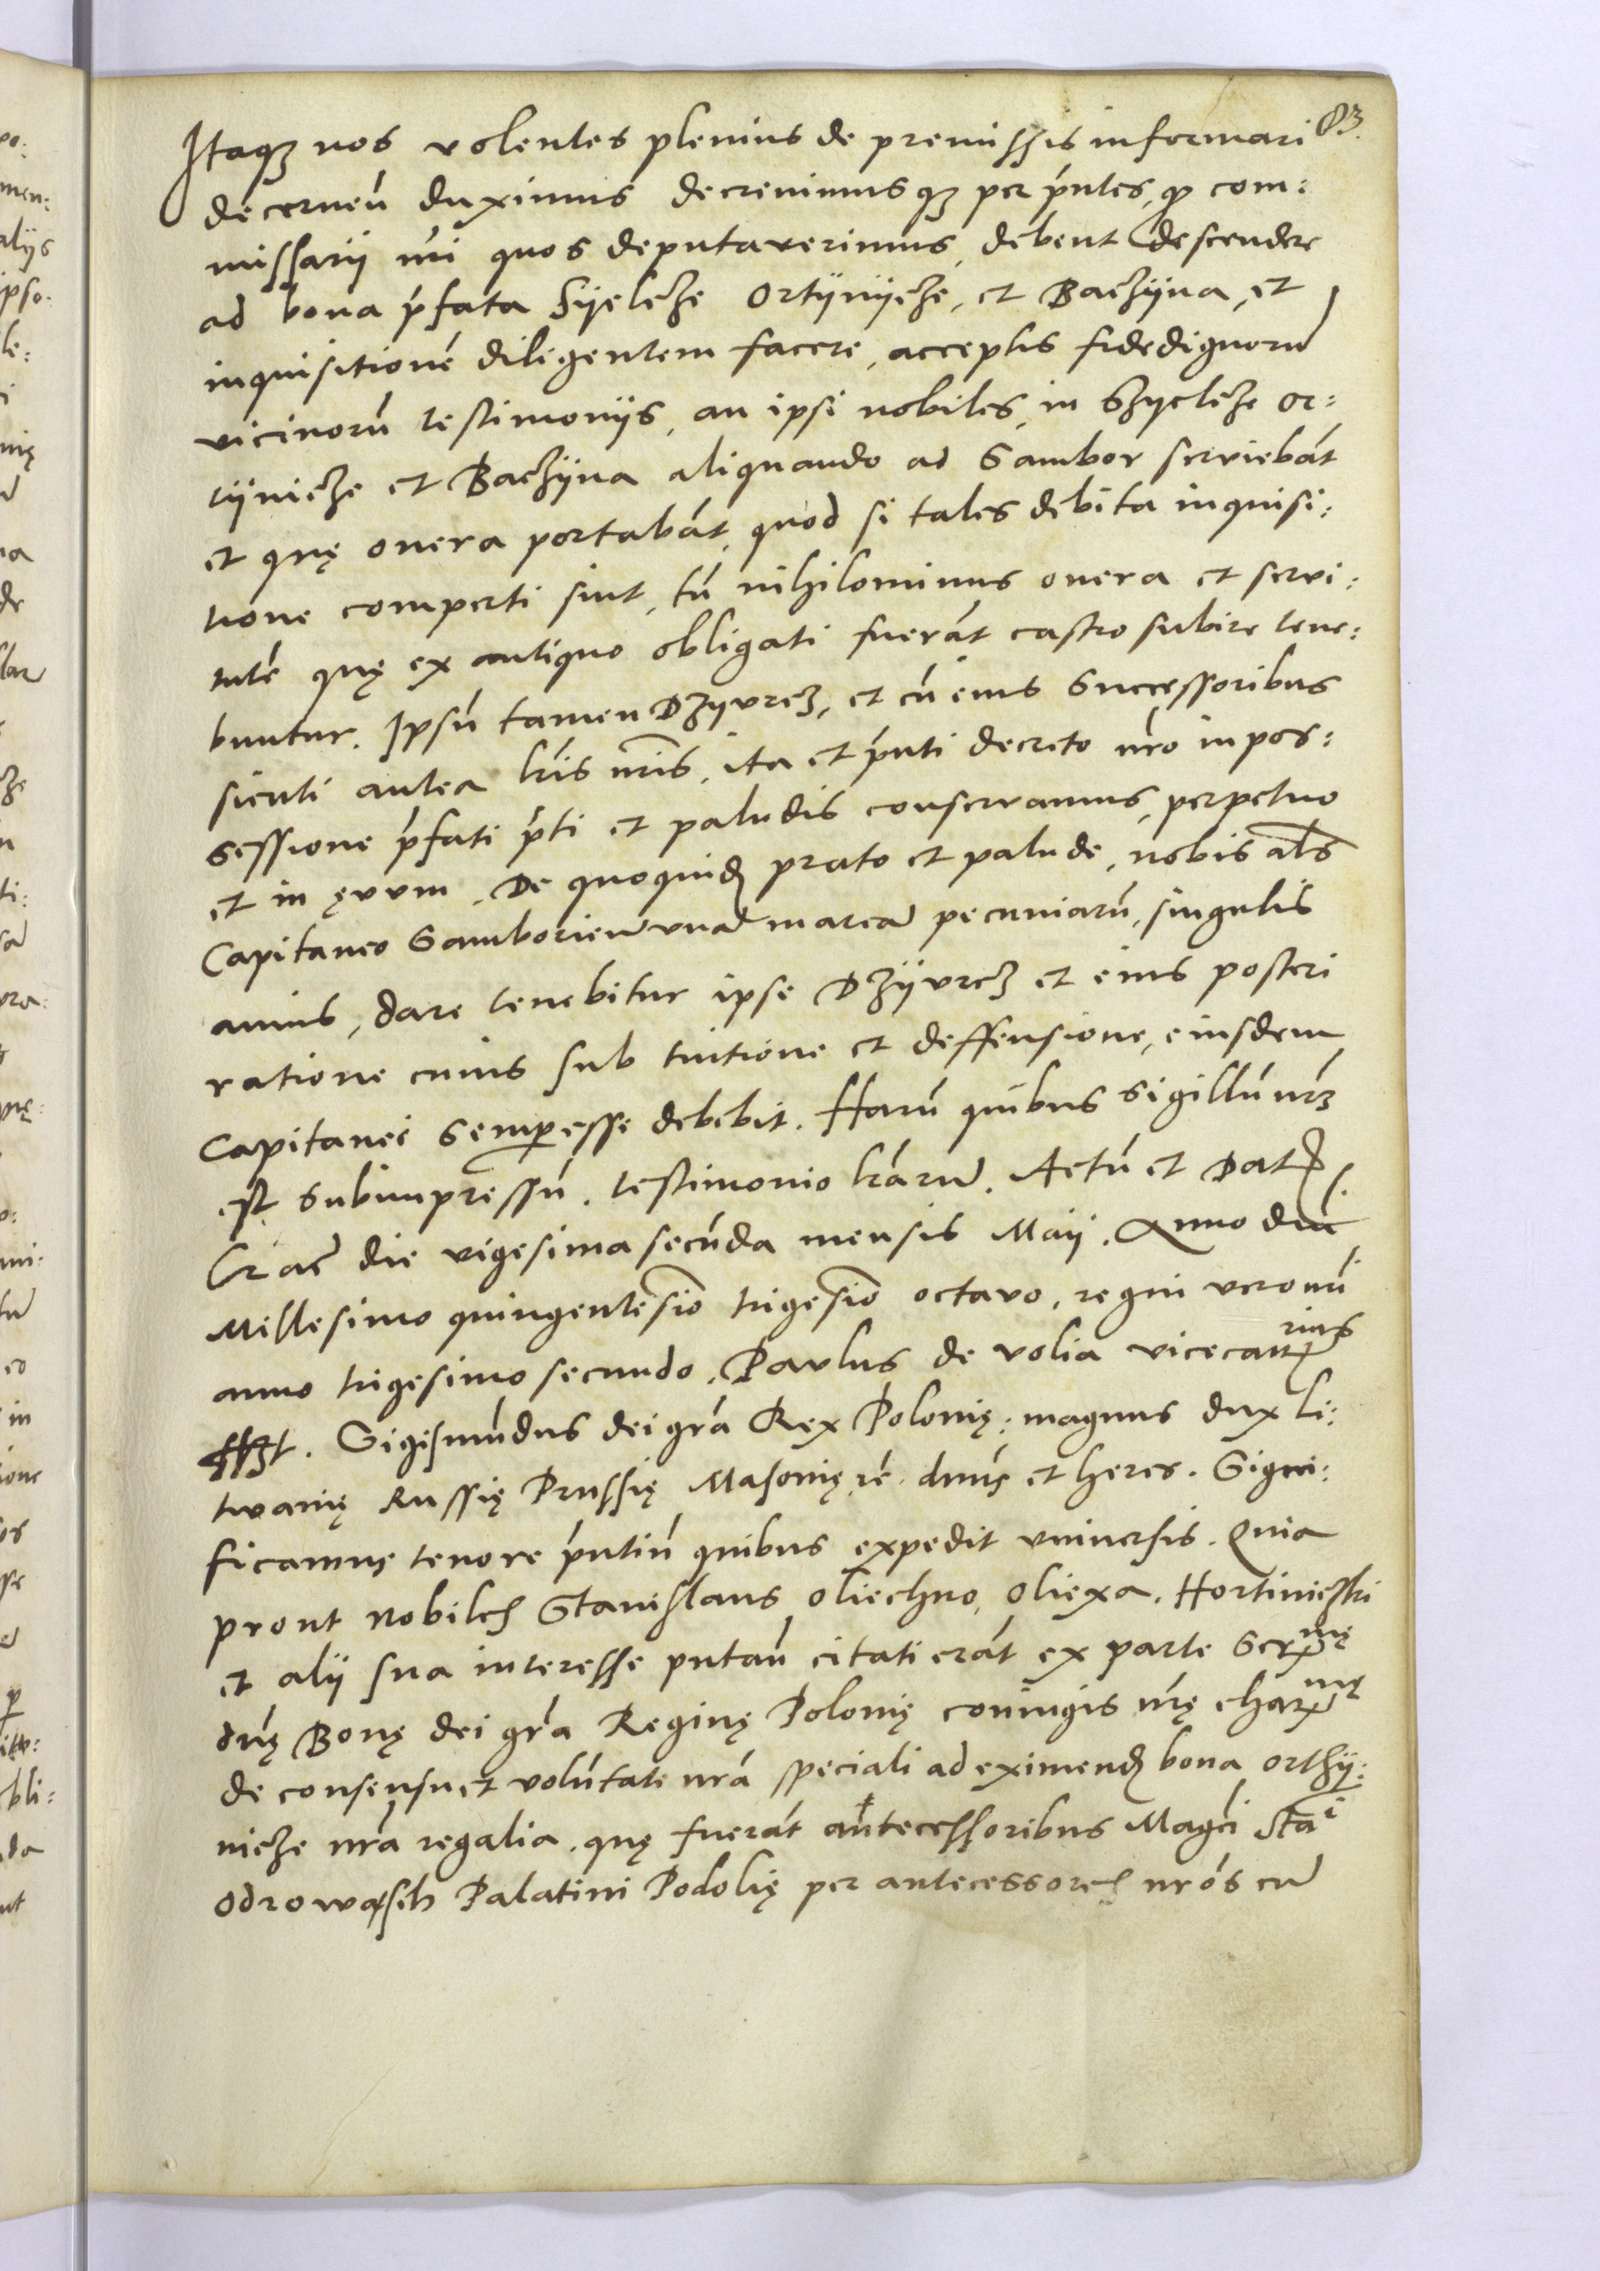 83.
Itaqꝫ nos volentes plenius de premissis informari
decerneń duximus decrevimusqꝫ per pńtes, ꝙ com:
missarij nr̃i quos deputaverimus, debent descendere
ad bona pŕfata Syelcze Ortynycze, et Baczyna, et
inquisitionẽ diligentem facere, acceptis fidedignorũ
vicinorũ testimonijs, an ipsi nobiles, in Szyelcze Or:
tynicze et Baczyna aliquando ad Sambor serviebãt
et quę onera portabãt, quod si tales debita inquisi:
tione comperti sint, tũ nihilominus onera et servi:
tutẽ quę ex antiquo obligati fuerãt castro subire tene:
buntur. Ipsũ tamen Dzyurcz, et cũ eius Successoribus
sicuti antea lr̃is nr̃is, ita et pñti decreto nr̃o in pos:
sessione pŕfati pŕti et paludis conservamus, perpetuo
et in ęvum. De quoquidẽ prato et palude, nobis als
Capitaneo Samborieñ unã marcã pecuniarũ, singulis
annis, dare tenebitur ipse Dzyurcz et eius posteri
ratione cuius sub tuitione et deffensione, eiusdem
Capitanei semp esse debebit. Harũ quibus sigillũ nr̃ꝫ
est subimpressũ. testimonio lr̃arũ. Actũ et Dat
Crac̃ die vigesima secũda mensis Maij. Anno dñi
Millesimo quingentesĩo trigesĩo octavo, regni vero nr̃i
anno trigesimo secundo. Paulus de volia vicecanrius
sszt. Sigismũdus dei gr̃a Rex Polonię: magnus dux Li:
twanię Russię Prussię Masovię rẽ. dnũs et heres. Signi:
ficamus tenore pñtiũ quibus expedit universis. Quia
prout nobiles Stanislaus Oliechno, Oliexa, Hortiniczki
et alij sua interesse putañ citati erãt ex parte Sermę
dñę Bonę dei gr̃a Reginę Polonię coniugis nr̃ę charmę
de consensu et volũtate nr̃a speciali ad eximendẽ bona Orthy:
nicze nr̃a regalia. quę fuerãt antecessoribus Magci Stai
Odrowąsch Palatini Podolię per antecessores nr̃os cũ